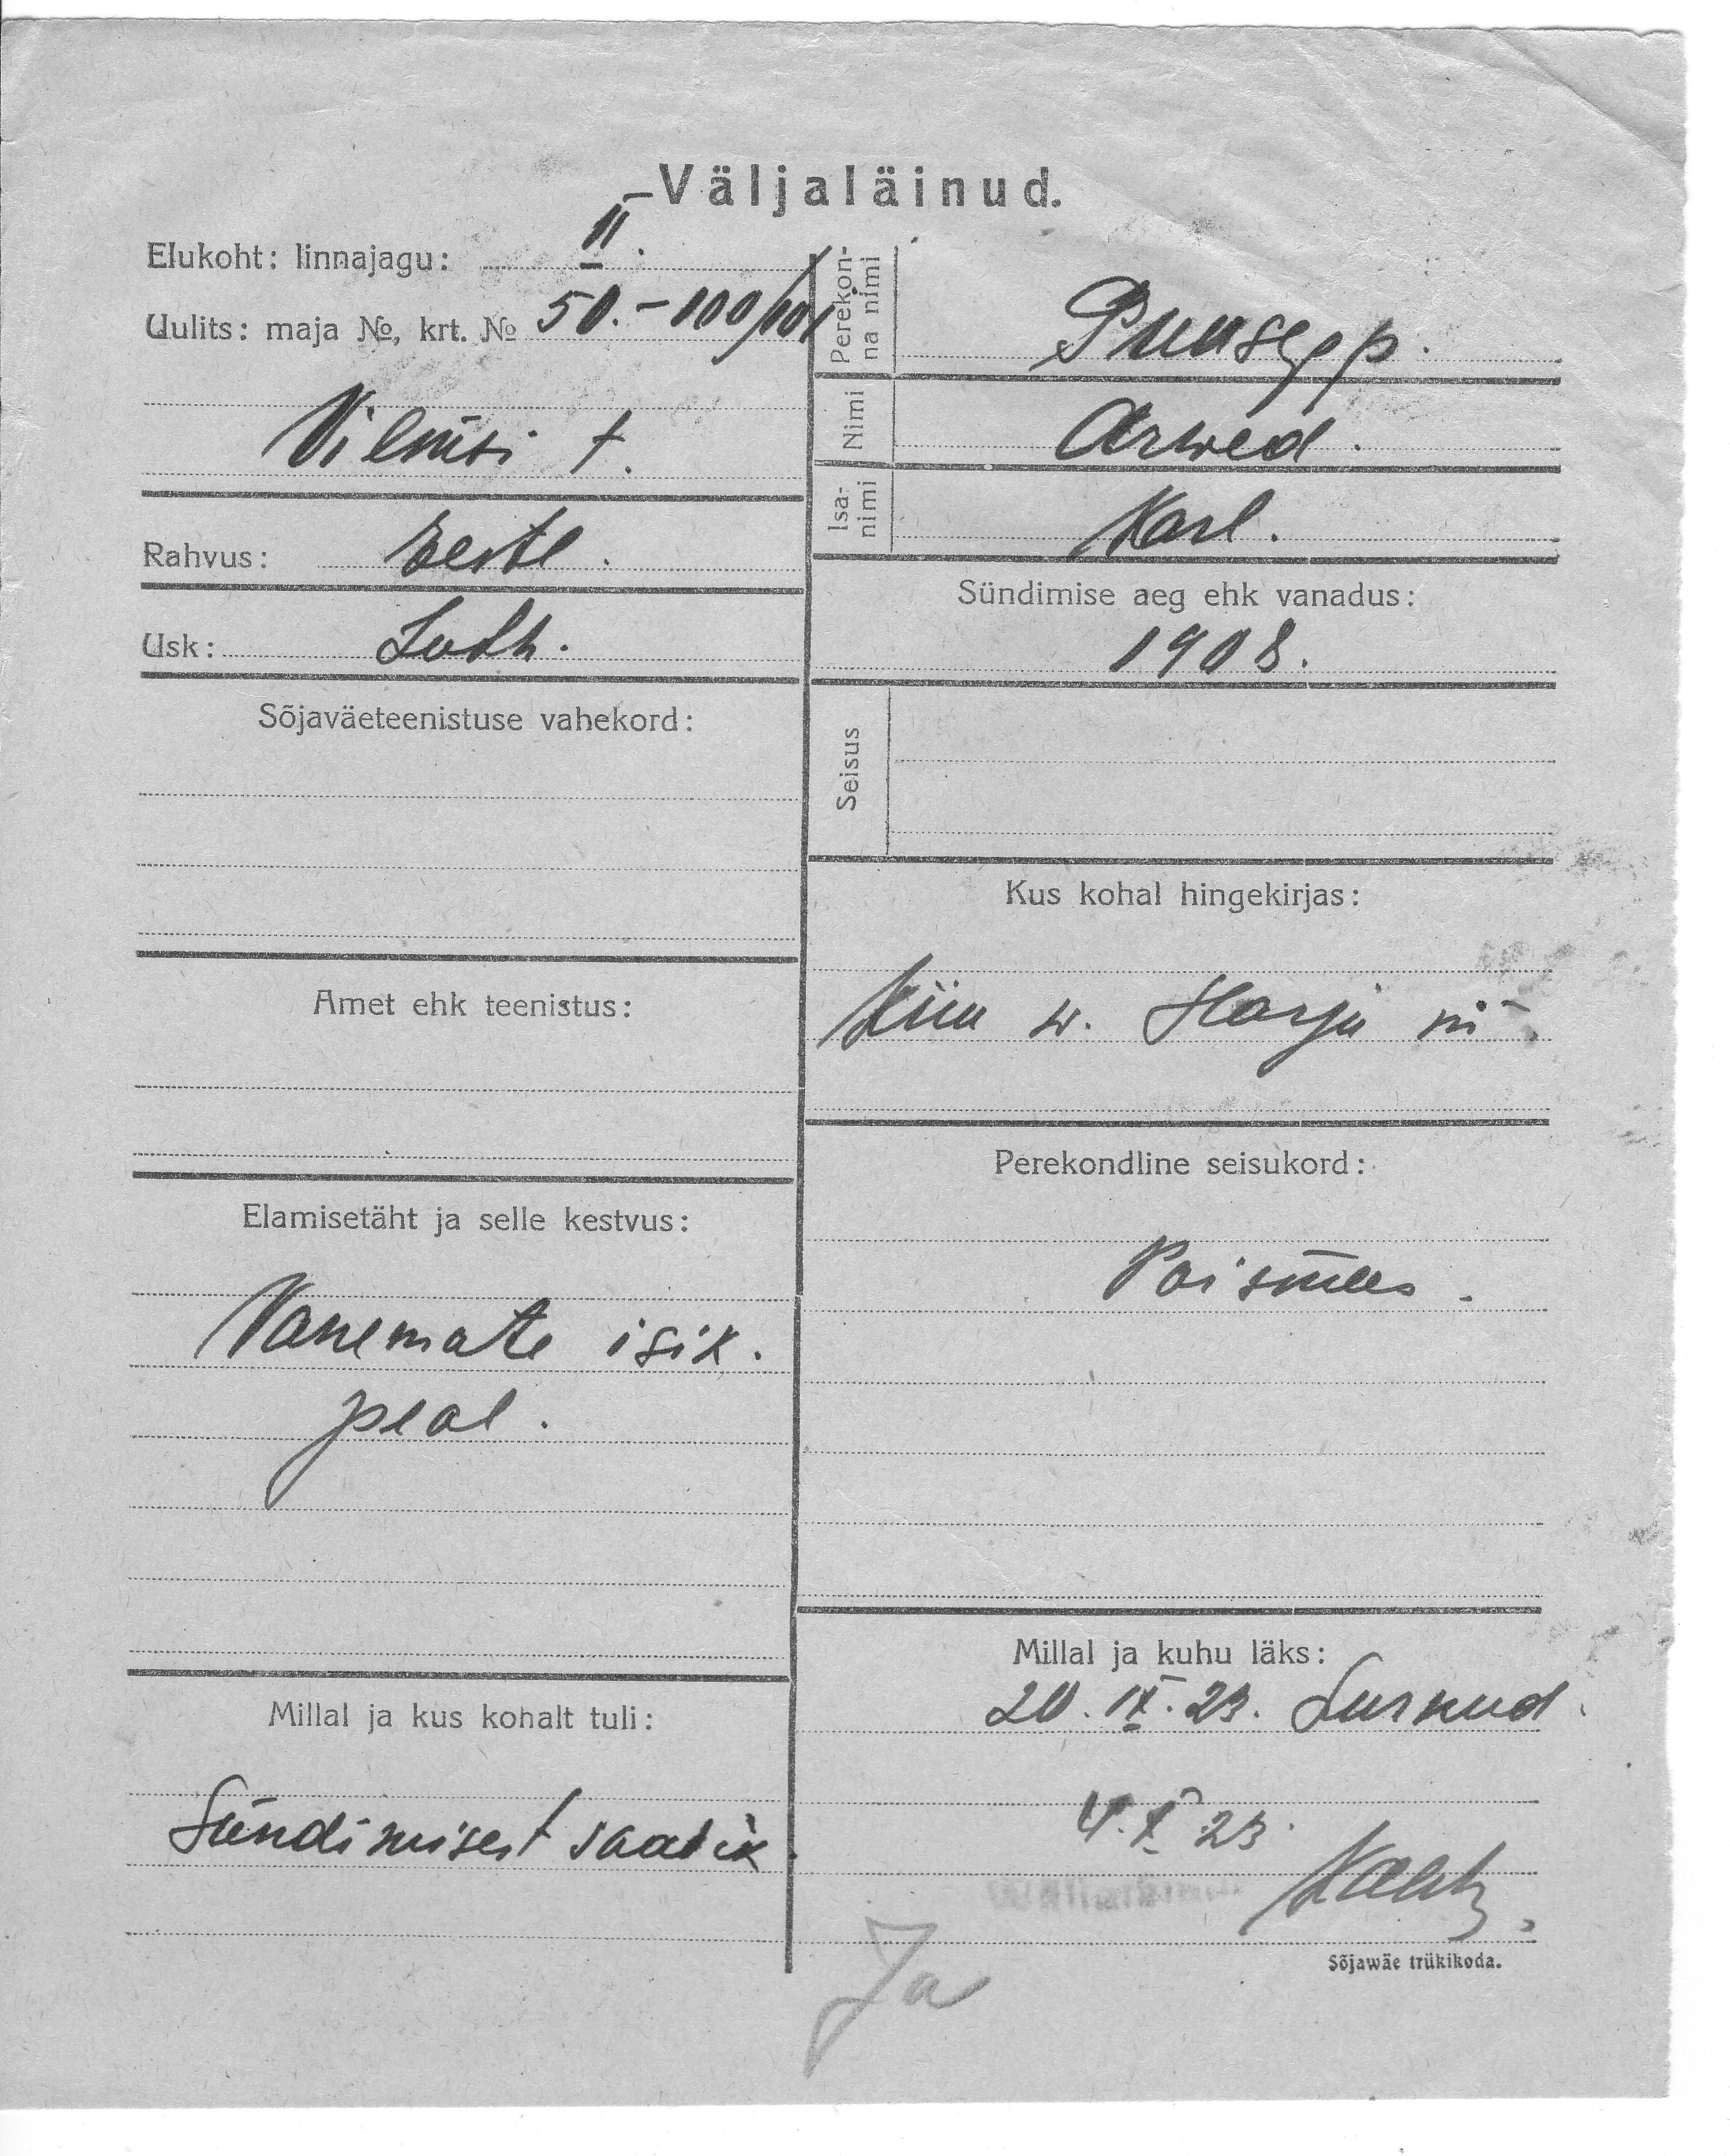 Väljaläinud.
Elukoht: linnajagu: II.
Uulits: maja №, krt. № 50.-100/101
Vilmsi t.
Rahvus: Eestl.
Usk: Luth.
Sõjaväeteenistuse vahekord:
Amet ehk teenistus:
Elamisetäht ja selle kestvus:
Vanemate isik.
peal.
Millal ja kus kohalt tuli:
Sündimisest saadik.
Perekon-
na nimi
Puusepp.
Nimi
Arwed.
Isa-
nimi
Karl.
Sündimise aeg ehk vanadus:
1908.
Seisus
Kus kohal hingekirjas:
Kiiu w. Harju m
Perekondline seisukord:
Poismees.
Millal ja kuhu läks:
20. IX. 23. Surnud.
4. X 23.
Sõjawäe trükikoda.
Ja